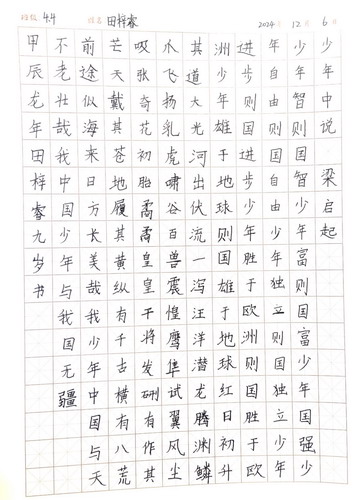 班级 4.4 姓名 田梓睿 2024年 12月 6日
少年中说 梁启起
少年智则国智少年富则国富少年国强少
年自由则国自由少年独立则国独立少年
进步则国进步少年胜于欧洲则国胜于欧
洲少年雄于地球则国雄于地球红日初升
其道大光河出伏流一泻汪洋潜龙腾渊鳞
爪飞扬乳虎啸谷百兽震惶鹰隼试翼风尘
吸张奇花初胎矞矞皇皇干将发硎有作其
芒天戴其苍地履其黄纵有千古横有八荒
前途似海来日方长美哉我少年中国与天
不老壮哉我中国少年与我国无疆
甲辰龙年田梓睿九岁书